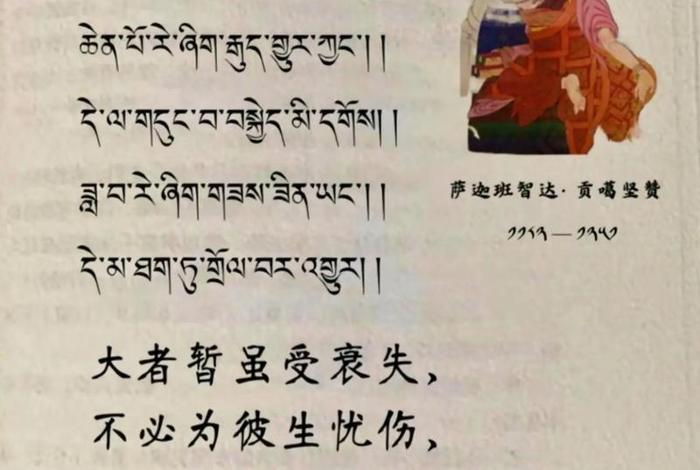 ཆེན་པོ་རེ་ཞིག་རྒུད་གྱུར་ཀྱང་། །
དེ་ལ་གདུང་བ་བསྐྱེད་མི་དགོས། །
ཟླ་བ་རེ་ཞིག་གཟས་ཟིན་ཡང་། །
དེ་མ་ཐག་ཏུ་གྲོལ་བར་འགྱུར། །
萨迦班智达·贡噶坚赞
༡༡༨༢—༡༢༥༡
大者暂虽受衰失，
不必为彼生忧伤，